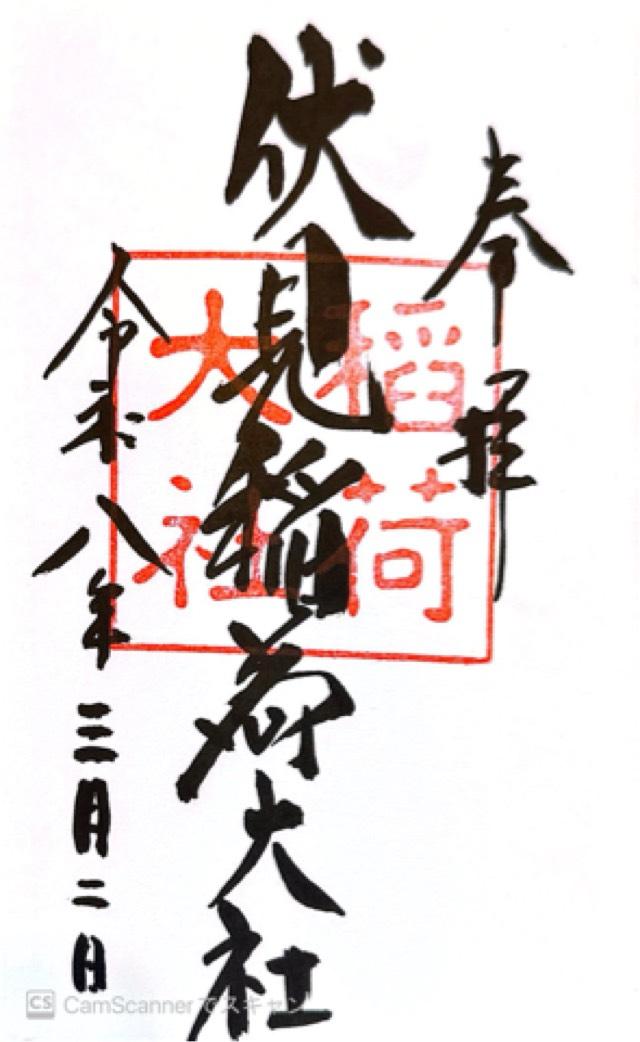 奉拝
伏見稲荷大社
令和八年三月二日
稲荷
大社
CS CamScannerでスキャン